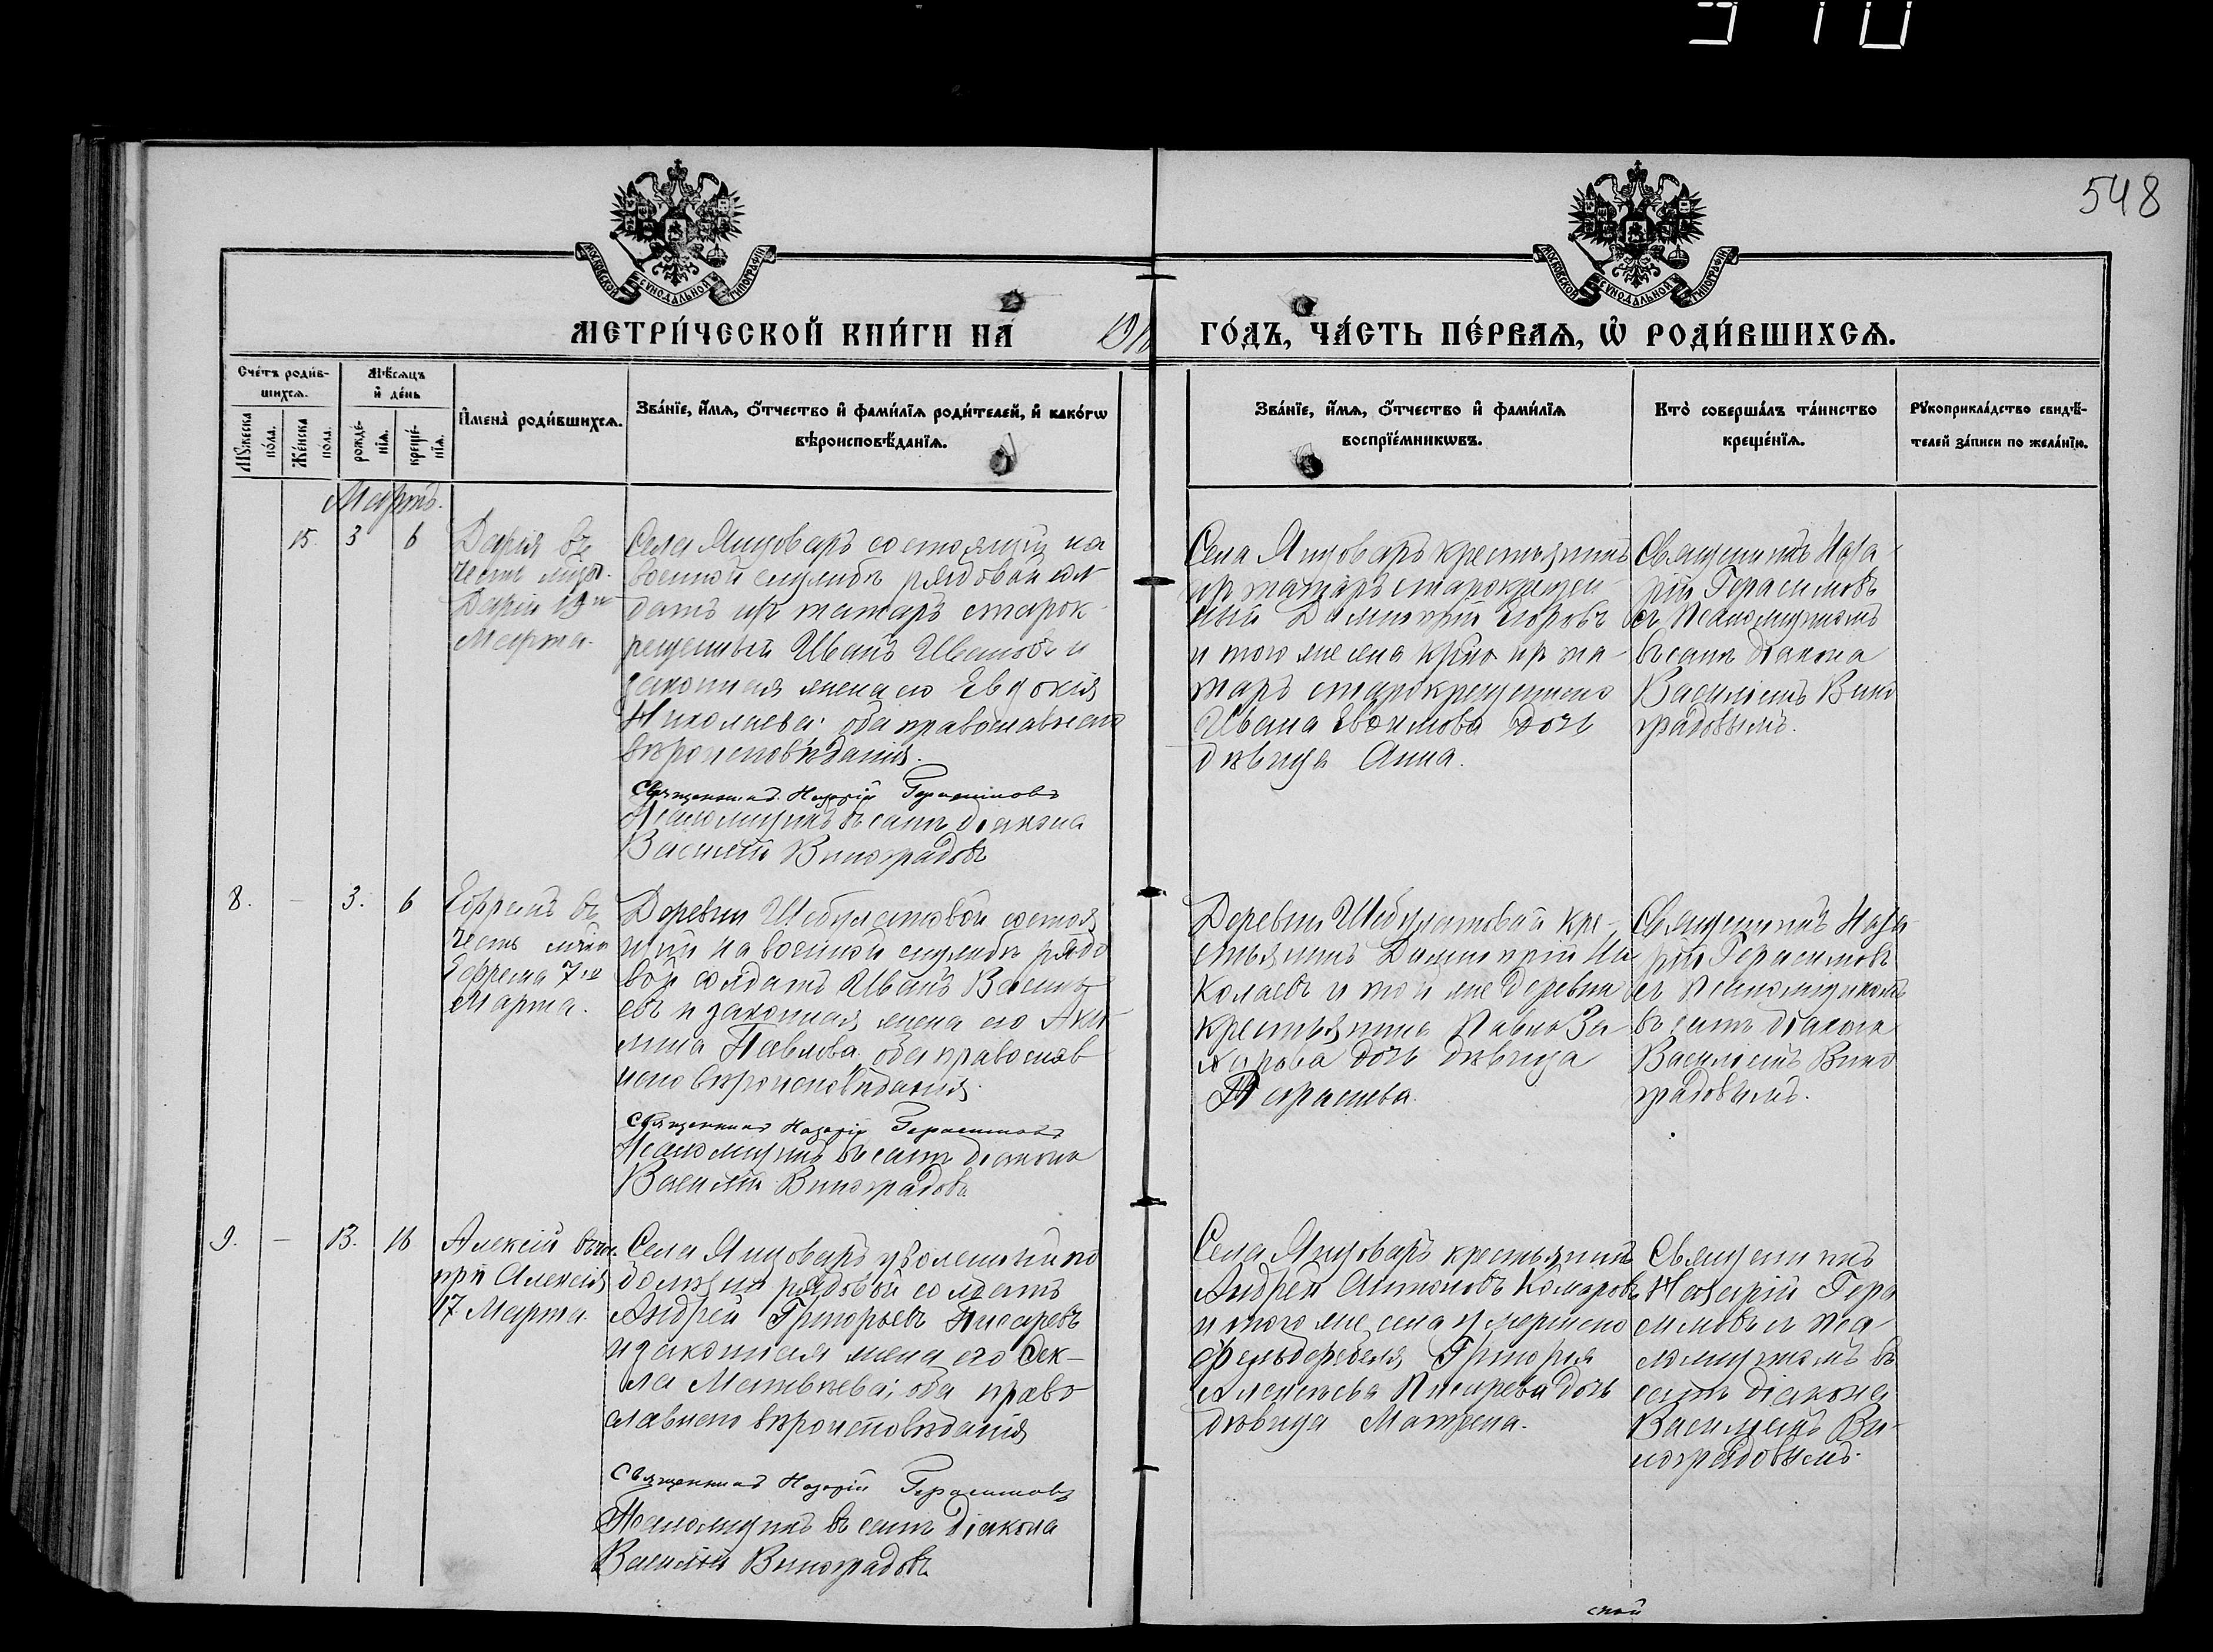 548
МОСКОВСКОЙ СѴНОДАЛЬНОЙ ТИПОГРАФІИ
МОСКОВСКОЙ СѴНОДАЛЬНОЙ ТИПОГРАФІИ
МЕТРИ́ЧЕСКОЙ КНИ́ГИ НА́ ГО́ДЪ, ЧА́СТЬ ПЕ́РВАѦ, Ѡ҆ РОДИ́ВШИХСѦ.
Сче́тъ роди́в-
шихсѧ.
Мꙋ́жеска по́ла.
Же́нска по́ла.
Мѣ́сѧцъ
и҆ де́нь
рожде́-
нїѧ.
креще́-
нїѧ.
И҆мена̀ роди́вшихсѧ.
Зва́нїе, и҆́мѧ, ѻ҆́тчество и҆ фами́лїѧ роди́телей, и҆ како́гѡ
вѣроисповѣ́данїѧ.
Зва́нїе, и҆́мѧ, ѻ҆́тчество и҆ фами́лїѧ
воспрїе́мникѡвъ.
Кто̀ соверша́лъ та́инство
креще́нїѧ.
Рꙋкоприкла́дство свидѣ́-
телей за́писи по жела́нїю.
Мартъ.
15 3 6
Дарія въ
честь
Даріи 19го
Марта.
Села Яныловаръ состоящій на
военной службѣ рядовой сол-
датъ изъ татаръ старок-
рещенный Иванъ Ивановъ и
законная жена его Евдокія
Николаева; оба православнаго
вѣроисповѣданія.
Священникъ Назарій Герасимовъ
Псаломщикъ въ санѣ діакона
Василій Виноградовъ
Села крестьянинъ
изъ татаръ старокрещен-
ный Димитрій Егоровъ
и того же села кр-на изъ та-
таръ старокрещеннаго
Ивана Евдокимова дочь
дѣвица Анна.
Священникъ Наза-
рій Герасимовъ
съ псаломщикомъ
въ санѣ діакона
Василіемъ Вино
градовымъ.
8. – 3. 6
Ефремъ въ
честь
Ефрема 7го
Марта.
Деревни состоя
щій на военной службѣ рядо
вой солдатъ Иванъ Василь
евъ и законная жена его Аки-
лина Павлова, оба православ
наго вѣроисповѣданія.
Священникъ Назарій Герасимовъ
Псаломщикъ въ санѣ діакона
Василій Виноградовъ
Деревни кре-
стьянинъ Димитрій Ни
колаевъ и той же деревни
крестьянина Павла За
харова дочь дѣвица
Параскева.
Священникъ Наза
рій Герасимовъ
съ псаломщикомъ
въ санѣ діакона
Василіемъ Вино
градовымъ.
9. – 13. 16
Алексій въ
Алексія
17 Марта.
Села уволенный по
болѣзни рядовой солдатъ
Андрей Григорьевъ Писаревъ
и законная жена его Ѳек-
ла Матвѣева; оба право
славнаго вѣроисповѣданія
Священникъ Назарій Герасимовъ
Псаломщикъ въ санѣ діакона
Василій Виноградовъ
Села крестьянинъ
Андрей Антоновъ Комаровъ
и того же села умершаго
фельдфебеля Григорія
Алексѣева Писарева дочь
дѣвица Матрена.
Священникъ
Назарій Гера
симовъ съ пса-
ломщикомъ въ
санѣ діакона
Василіемъ Ви-
ноградовымъ.